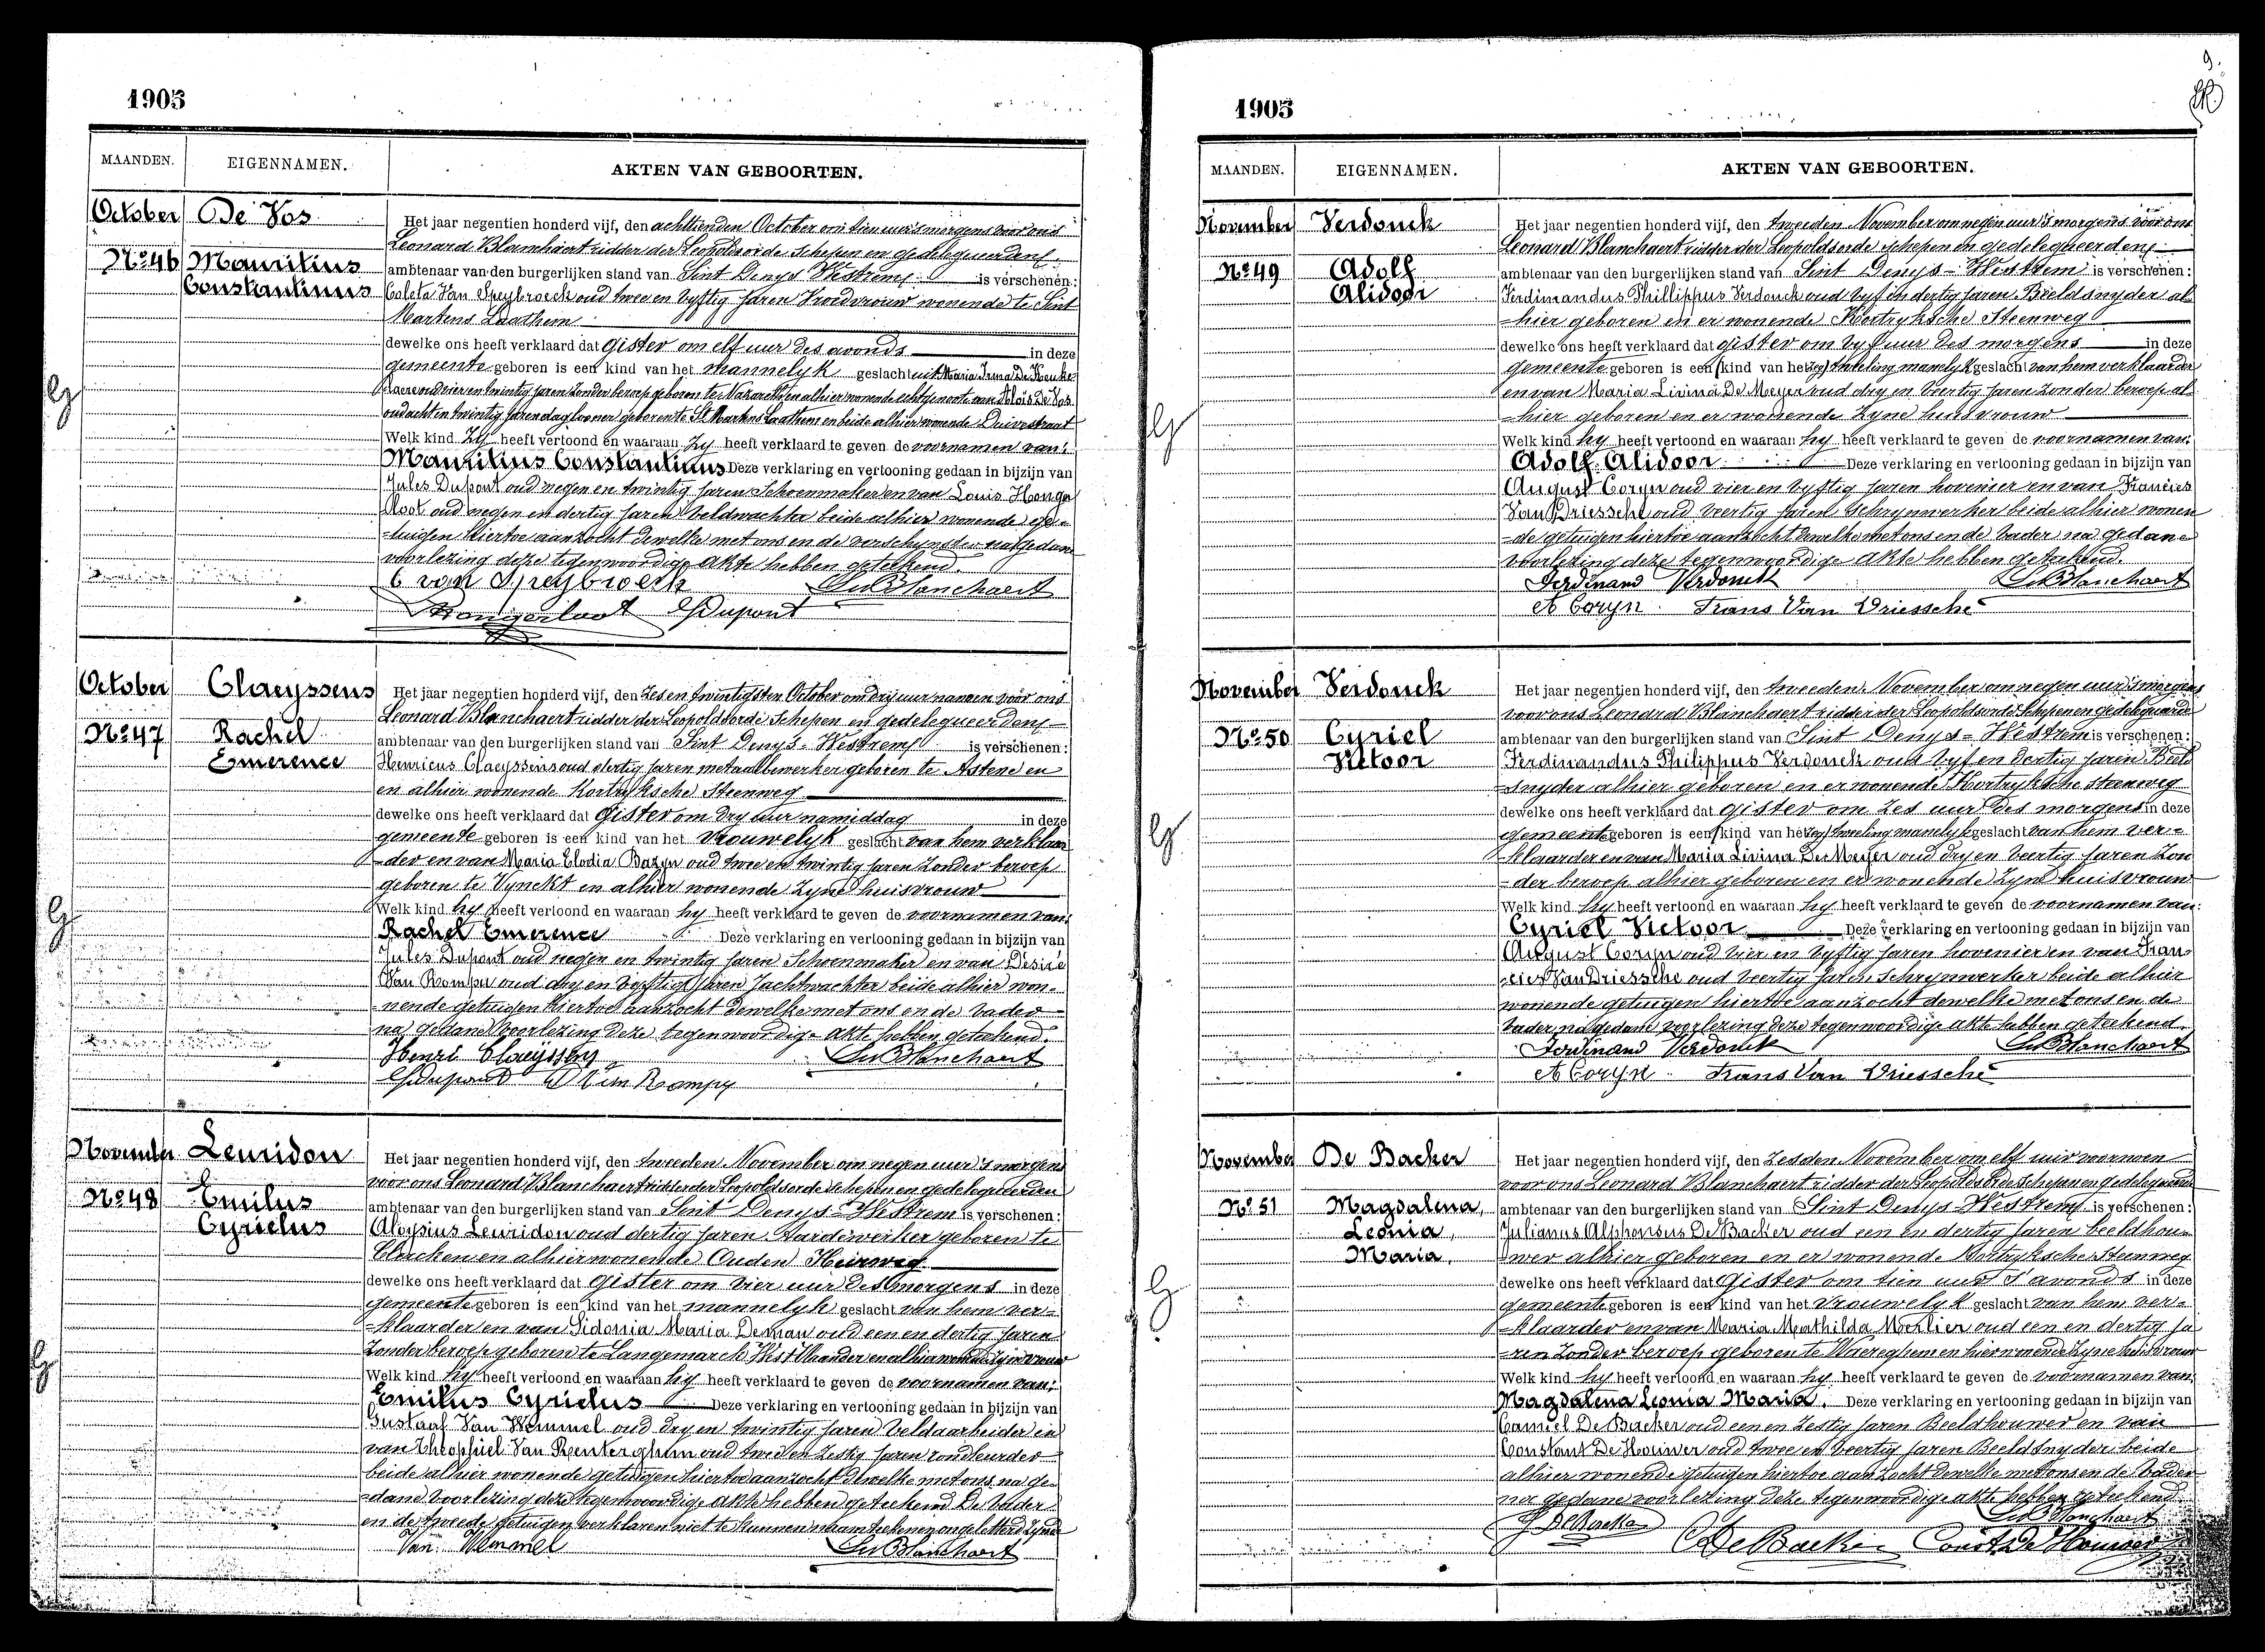 1905
MAANDEN. EIGENNAMEN. AKTEN VAN GEBOORTEN.
October De Vos
No 46 Mauritius
Constantinus
Het jaar negentien honderd vijf, den achttienden October om tien uur 's morgens voor ons
Leonard Blanchaert ridder der Leopoldsorde Schepen en gedelegueerden
ambtenaar van den burgerlijken stand van Sint Denys Westrem is verschenen:
Coleta Van Speybroeck oud twee en vyftig jaren Vroedvrouw wonende te Sint
Martens Laathem
dewelke ons heeft verklaard dat gister om elf uur des avonds in deze
gemeente geboren is een kind van het mannelyk geslacht uit Maria Irma De Keuke-
laere oud vier en twintig jaren zonder beroep geboren te Nazareth en alhier wonende echtgenoote van Aloïs De Vos
oud acht en twintig jaren daglooner geboren te St Martens Laathem en beide alhier wonende Duivestraat
Welk kind zy heeft vertoond en waaraan zy heeft verklaard te geven de voornamen van:
Mauritius Constantinus Deze verklaring en vertooning gedaan in bijzijn van
Jules Dupont oud negen en twintig jaren Schoenmaker en van Louis Honger
loot oud negen en dertig jaren veldwachter beide alhier wonende ge-
-tuigen hiertoe aanzocht dewelke met ons en de verschynster na gedane
voorlezing deze tegenwoordige akte hebben geteekend.
C van Speybroeck Le Blanchaert
Hongerloot J Dupont
October Claeyssens
No 47 Rachel
Emerence
Het jaar negentien honderd vijf, den zes en twintigsten October om dry uur namien voor ons
Leonard Blanchaert ridder der Leopoldsorde Schepen en gedelegueerden
ambtenaar van den burgerlijken stand van Sint Denys-Westrem is verschenen:
Henricus Claeyssens oud dertig jaren metaalbewerker geboren te Astene en
en alhier wonende Kortryksche Steenweg
dewelke ons heeft verklaard dat gister om dry uur namiddag in deze
gemeente geboren is een kind van het vrouwelyk geslacht van hem verklaar
-der en van Maria Elodia Bazyn oud twee en twintig jaren zonder beroep
geboren te Vynckt en alhier wonende zyne huisvrouw
Welk kind hy heeft vertoond en waaraan hy heeft verklaard te geven de voornamen van
Rachel Emerence Deze verklaring en vertooning gedaan in bijzijn van
Jules Dupont oud negen en twintig jaren Schoenmaker en van Désiré
Van Rompu oud dry en vyftig jaren Jachtwachter beide alhier wo-
-nende getuigen hiertoe aanzocht dewelke met ons en de vader
na gedane voorlezing deze tegenwoordige akte hebben geteekend.
Henri Claeyssens Le Blanchaert
J Dupont D Van Rompu
November Leuridon
No 48 Emilus
Cyrielus
Het jaar negentien honderd vijf, den tweeden November om negen uur 's morgens
voor ons Leonard Blanchaert ridder der Leopoldsorde Schepen en gedelegueerden
ambtenaar van den burgerlijken stand van Sint Denys-Westrem is verschenen:
Aloysius Leuridon oud dertig jaren Aardewerker geboren te
en alhier wonende Ouden Heirweg
dewelke ons heeft verklaard dat gister om vier uur des morgens in deze
gemeente geboren is een kind van het mannelyk geslacht van hem ver-
-klaarder en van Sidonia Maria Deman oud een en dertig jaren
zonder beroep geboren te Langemarck West Vlaander en alhier wonende zyne vrouw
Welk kind hy heeft vertoond en waaraan hy heeft verklaard te geven de voornamen van:
Emilus Cyrielus Deze verklaring en vertooning gedaan in bijzijn van
Gustaaf Van Wemmel oud dry en twintig jaren Veldaarbeider en
van Theophiel Van Renterghem oud twee en zestig jaren rondleurder
beide alhier wonende getuigen hiertoe aanzocht dewelke met ons na ge-
-dane voorlezing deze tegenwoordige akte hebben geteekend De Vader
en de tweede getuigen verklaren niet te kunnen naamteekenen ongeletterd zynde
Van Wemmel Le Blanchaert
9.
1905
MAANDEN. EIGENNAMEN. AKTEN VAN GEBOORTEN.
November Verdonck
No 49 Adolf
Alidoor
Het jaar negentien honderd vijf, den tweeden November om negen uur 's morgens voor ons
Leonard Blanchaert ridder der Leopoldsorde schepen en gedelegueerden
ambtenaar van den burgerlijken stand van Sint Denys-Westrem is verschenen:
Ferdinandus Phillippus Verdonck oud vyf en dertig jaren Beeldsnyder al-
-hier geboren en er wonende Kortryksche Steenweg
dewelke ons heeft verklaard dat gister om vyf uur des morgens in deze
gemeente geboren is een kind van het (zeg) tweeling manelyk geslacht van hem verklaarder
en van Maria Livina De Meyer oud dry en veertig jaren zonder beroep al-
-hier geboren en er wonende zyne huisvrouw
Welk kind hy heeft vertoond en waaraan hy heeft verklaard te geven de voornamen van:
Adolf Alidoor Deze verklaring en vertooning gedaan in bijzijn van
August Coryn oud vier en vyftig jaren hovenier en van Francies
Van Driessche oud veertig jaren Schrynwerker beide alhier wonen
-de getuigen hiertoe aanzocht dewelke met ons en de vader na gedane
voorlezing deze tegenwoordige akte hebben geteekend.
Ferdinand Verdonck Le Blanchaert
A Coryn Frans Van Driessche
November Verdonck
No 50 Cyriel
Victoor
Het jaar negentien honderd vijf, den tweeden November om negen uur 's morgens
voor ons Leonard Blanchaert ridder der Leopoldsorde schepen en gedelegueerde
ambtenaar van den burgerlijken stand van Sint Denys-Westrem is verschenen:
Ferdinandus Philippus Verdonck oud vyf en dertig jaren Beeld
-snyder alhier geboren en er wonende Kortryksche steenweg
dewelke ons heeft verklaard dat gister om zes uur des morgens in deze
gemeente geboren is een kind van het (zeg) tweeling manelyk geslacht van hem ver-
-klaarder en van Maria Livina De Meyer oud dry en veertig jaren zon
-der beroep alhier geboren en er wonende zyne huisvrouw
Welk kind hy heeft vertoond en waaraan hy heeft verklaard te geven de voornamen van:
Cyriel Victoor Deze verklaring en vertooning gedaan in bijzijn van
August Coryn oud vier en vyftig jaren hovenier en van Fran
-cies Van Driessche oud veertig jaren Schrynwerker beide alhier
wonende getuigen hiertoe aanzocht dewelke met ons en de
vader na gedane voorlezing deze tegenwoordige akte hebben geteekend.
Ferdinand Verdonck Le Blanchaert
A Coryn Frans Van Driessche
November De Backer
No 51 Magdalena,
Leonia,
Maria.
Het jaar negentien honderd vijf, den zesden November om elf uur voornoen
voor ons Leonard Blanchaert ridder der Leopoldsorde Schepen en gedelegueerde
ambtenaar van den burgerlijken stand van Sint Denys-Westrem is verschenen:
Julianus Alphonsus De Backer oud een en dertig jaren beeldhou-
-wer alhier geboren en er wonende Kortryksche Steenweg
dewelke ons heeft verklaard dat gister om tien uur 's avonds in deze
gemeente geboren is een kind van het vrouwelyk geslacht van hem ver-
-klaarder en van Maria Mathilda Merlier oud een en dertig ja
-ren zonder beroep geboren te Waereghem en hier wonende zyne huisvrouw
Welk kind hy heeft vertoond en waaraan hy heeft verklaard te geven de voornamen van:
Magdalena Leonia Maria. Deze verklaring en vertooning gedaan in bijzijn van
Camiel De Backer oud een en zestig jaren Beeldhouwer en van
Constant De Houwer oud twee en veertig jaren Beeldsnyder beide
alhier wonende getuigen hiertoe aanzocht dewelke met ons en de vader
na gedane voorlezing deze tegenwoordige akte hebben geteekend
Le Blanchaert
J De Backer C De Backer Const De Houwer